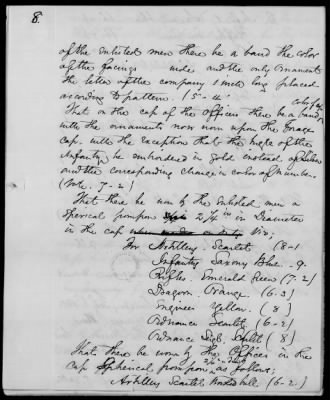 8.
of the enlisted men there be a band the color
of the facings wide and the only ornament
the letter of the company 1 inch long placed
according to pattern. (5-4.)
That on the cap of the Officers there be a band color of
with the ornaments now worn upon the forage
cap, with the exception that the bugle of the
Infantry, be embroidered in gold instead of silver
and the corresponding change in color of number.
(Vote. 7-2)
That there be worn by the Enlisted men a
Sperical pompon 2 1/4 in in Diameter
in the cap viz:
For Artillery. Scarlet (8-1
Infantry Saxony Blue. -9.
Rifles. Emerald Green (7-2)
Dragoon. Orange. (6-3)
Engineer Yellow. (8)
Ordnance Scarlet (6-2)
Ordnance Scarlet (8)
That there be worn by the Officers in the
cap Spherical pompon, as follows;
Artillery Scarlet (6-2.)